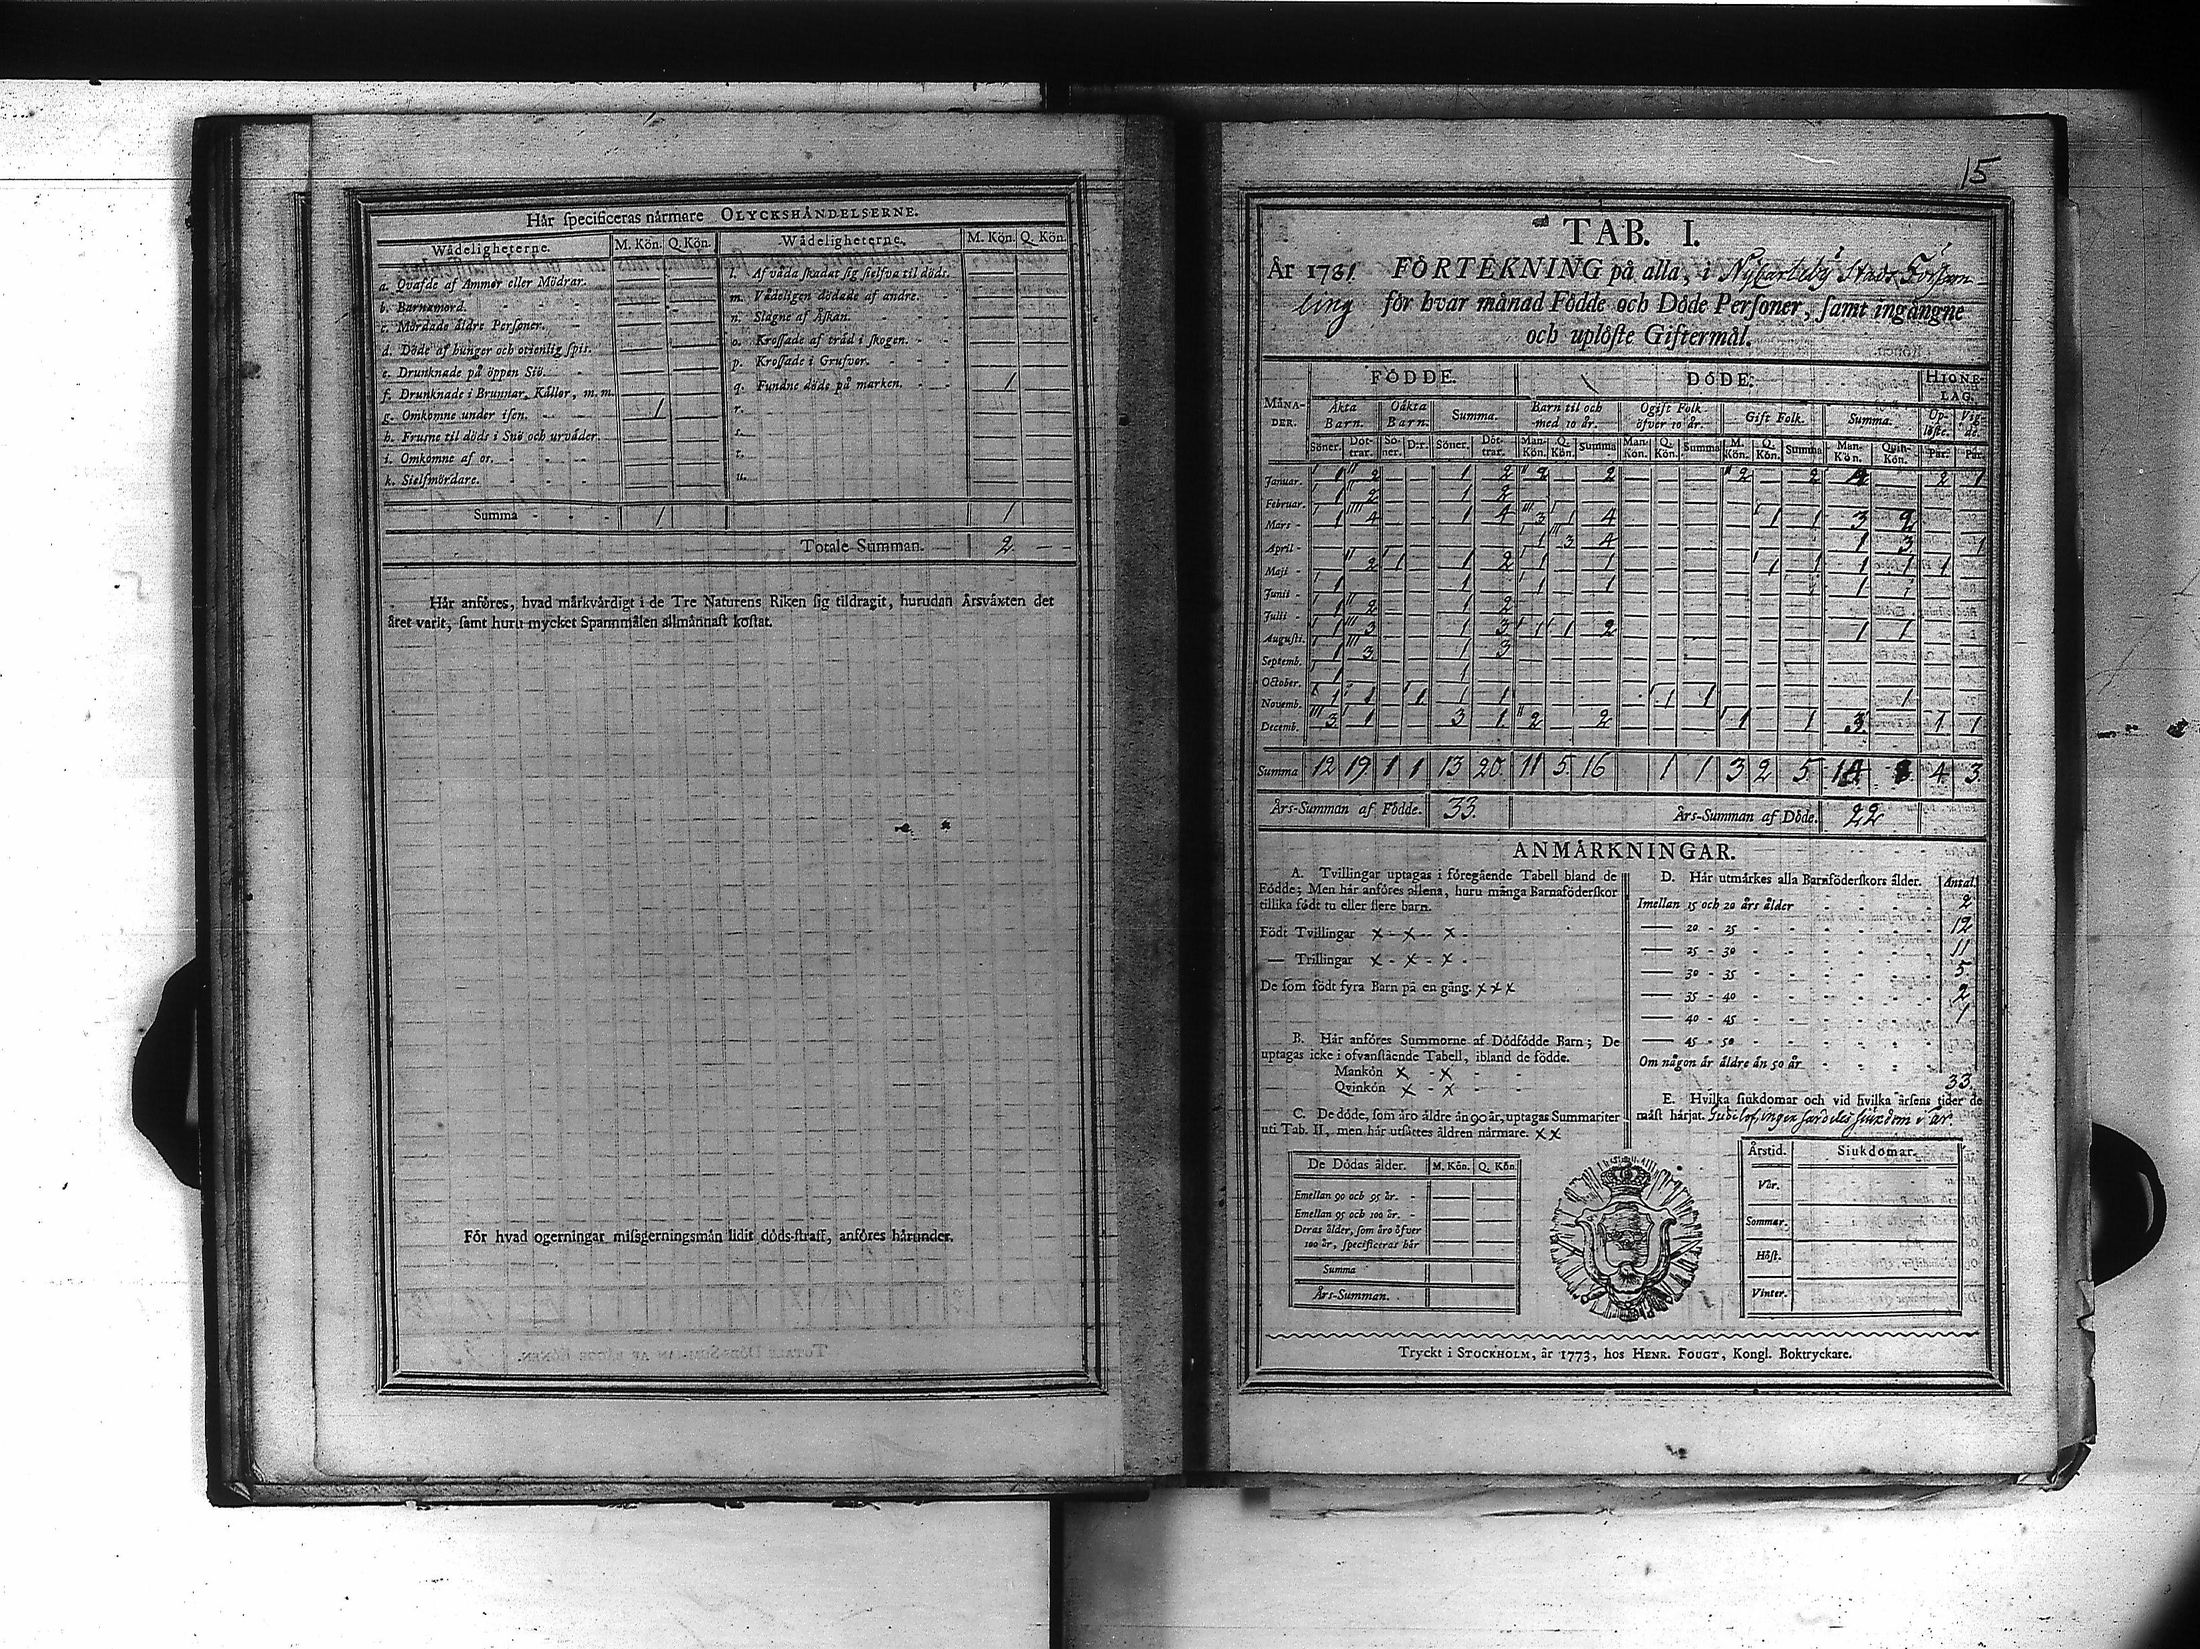 Här specificeras närmare OLYCKSHÄNDELSERNE.
Wådeligheterne. M. Kön. Q. Kön. Wådeligheterne. M. Kön. Q. Kön.
a. Qvafde af Ammor eller Mödrar. — — l. Af våda skadat sig sielfva til döds. — —
b. Barnamord. — — m. Vådeligen dödade af andre. — —
c. Mördade äldre Personer. — — n. Slagne af Åskan. — —
d. Döde af hunger och otienlig spis. — — o. Krossade af träd i skogen. — —
e. Drunknade på öppen Siö. — — p. Krossade i Grufvor. — —
f. Drunknade i Brunnar, Källor, m. m. — — q. Fundne döde på marken. 1 —
g. Omkomne under isen. 1 — r. — —
h. Frusne til döds i Snö och urväder. — — s. — —
i. Omkomne af os. — — t. — —
k. Sielfmördare. — — u. — —
Summa 1 1
Totale Summan. 2 — —
Här anföres, hvad märkvärdigt i de Tre Naturens Riken sig tildragit, hurudan Årsväxten det
året varit, samt huru mycket Spannmålen allmännast kostat.
För hvad ogerningar missgerningsmän lidit döds-straff, anföres härunder.
15
TAB. I.
År 1781. FÖRTEKNING på alla, i Nykarleby Stads Församling
för hvar månad Födde och Döde Personer, samt ingångne
och uplöste Giftermål.
MÅNADER. FÖDDE. DÖDE. HIONELAG.
Äkta Barn. Oäkta Barn. Summa. Barn til och med 10 år. Ogift Folk öfver 10 år. Gift Folk. Summa. Uplöste. Vigde.
Söner. Döttrar. Söner. D:r. Söner. Döttrar. Man-Kön. Q. Kön. Summa Man-Kön. Q. Kön. Summa M. Kön. Q. Kön. Summa Man-Kön. Qvin-Kön. Par. Par.
Januar. 1 2 — — 1 2 2 — 2 — — — 2 — 2 4 — 2 1
Februar. 1 2 — — 1 2 — — — — — — — — — — — — —
Mars - 1 4 — — 1 4 3 1 4 — — — — 1 1 3 2 — —
April - — — — — — — 1 3 4 — — — — — — 1 3 — 1
Maji - — 2 1 — 1 2 1 — 1 — — — — 1 1 1 1 1 —
Junii - 1 — — — 1 — 1 — 1 — — — — — — 1 — — —
Julii - 1 2 — — 1 2 — — — — — — — — — — — — —
Augusti. 1 3 — — 1 3 1 1 2 — — — — — — 1 1 — —
Septemb. 1 3 — — 1 3 — — — — — — — — — — — — —
October. 1 — — — 1 — — — — — — — — — — — — — —
Novemb. 1 — — 1 1 1 — — — — 1 1 — — — — 1 — —
Decemb. 3 1 — — 3 1 2 — 2 — — — 1 — 1 3 — 1 1
Summa 12 19 1 1 13 20 11 5 16 1 1 3 2 5 14 8 4 3
Års-Summan af Födde. 33. Års-Summan af Döde. 22
ANMÄRKNINGAR.
A. Tvillingar uptagas i föregående Tabell bland de
Födde; Men här anföres allena, huru många Barnaföderskor
tillika födt tu eller flere barn.
Födt Tvillingar x - x - x -
— Trillingar x - x - x -
De som födt fyra Barn på en gång. x x x
B. Här anföres Summorne af Dödfödde Barn; De
uptagas icke i ofvanstående Tabell, ibland de födde.
Mankön x - x
Qvinkön x - x
C. De döde, som äro äldre än 90 år, uptagas Summariter
uti Tab. II, men här utsättes åldren närmare. x x
De Dödas ålder. M. Kön. Q. Kön.
Emellan 90 och 95 år. — —
Emellan 95 och 100 år. — —
Deras ålder, som äro öfver — —
100 år, specificeras här — —
Summa
Års-Summan.
D. Här utmärkes alla Barnföderskors ålder. Antal.
Imellan 15 och 20 års ålder 2
— 20 - 25 12
— 25 - 30 11
— 30 - 35 5.
— 35 - 40 2
— 40 - 45 1
— 45 - 50
Om någon är äldre än 50 år
33.
E. Hvilka siukdomar och vid hvilka årsens tider de
mäst härjat. Gudi lof, ingen sjukdom i år.
Årstid. Siukdomar.
Vår.
Sommar.
Höst.
Vinter.
Tryckt i STOCKHOLM, år 1773, hos HENR. FOUGT, Kongl. Boktryckare.